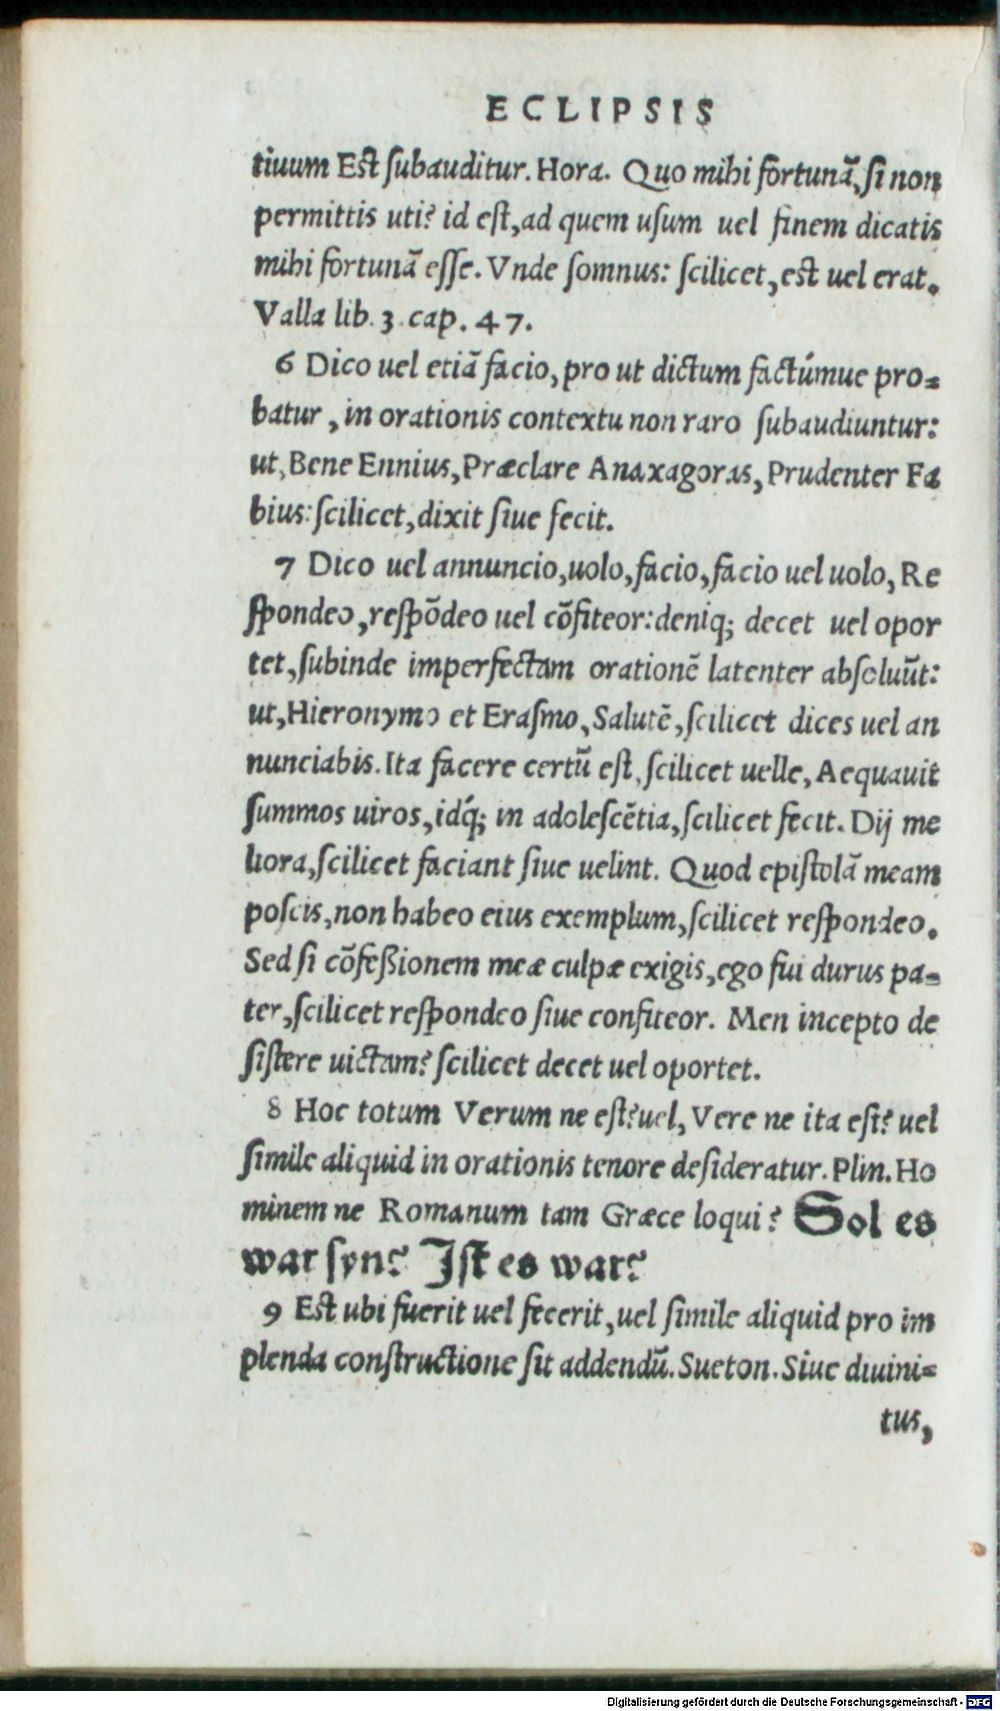 ECLIPSIS
tiuum Est ſubauditur. Hora. Quo mihi fortunã, ſi non
permittis uti? id eſt, ad quem uſum uel finem dicatis
mihi fortunã eſſe. Vnde ſomnus: ſcilicet, est uel erat.
Valla lib. 3. cap. 47.
6 Dico uel etiã facio, pro ut dictum factúmue pro=
batur, in orationis contextu non raro ſubaudiuntur:
ut, Bene Ennius, Præclare Anaxagoras, Prudenter Fa
bius: ſcilicet, dixit ſiue fecit.
7 Dico uel annuncio, uolo, facio, facio uel uolo, Re
ſpondeo, reſpõdeo uel cõfiteor: deniq; decet uel opor
tet, ſubinde imperfectam orationẽ latenter abſoluũt:
ut, Hieronymo et Eraſmo, Salutẽ, ſcilicet dices uel an
nunciabis. Ita facere certũ eſt, ſcilicet uelle, Aequauit
ſummos uiros, idq́; in adoleſcẽtia, ſcilicet fecit. Dij me
liora, ſcilicet faciant ſiue uelint. Quod epiſtolã meam
poſcis, non habeo eius exemplum, ſcilicet reſpondeo.
Sed ſi cõfeßionem meæ culpæ exigis, ego fui durus pa=
ter, ſcilicet reſpondeo ſiue confiteor. Men incepto de
ſiſtere uictam? ſcilicet decet uel oportet.
8 Hoc totum Verum ne eſt? uel, Vere ne ita eſt? uel
ſimile aliquid in orationis tenore deſideratur. Plin. Ho
minem ne Romanum tam Græce loqui? Sol es
war ſyn? Iſt es war?
9 Est ubi fuerit uel fecerit, uel ſimile aliquid pro im
plenda conſtructione ſit addendũ. Sueton. Siue diuini=
tus,
Digitalisierung gefördert durch die Deutsche Forschungsgemeinschaft - DFG